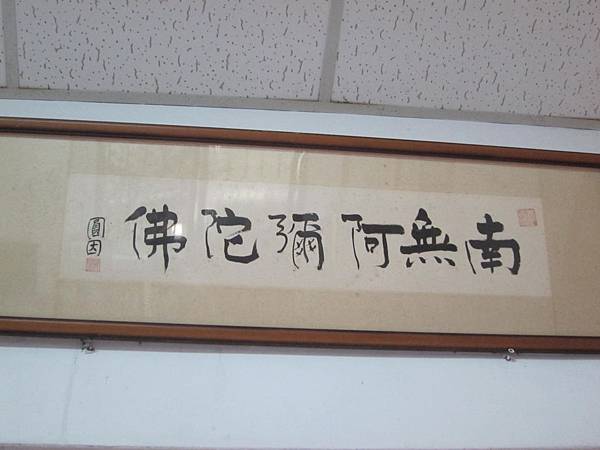 南無阿彌陀佛
圓因